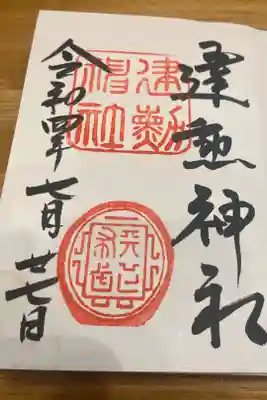 建勲神社
建勲
神社
天下
布武
令和四年七月廿七日